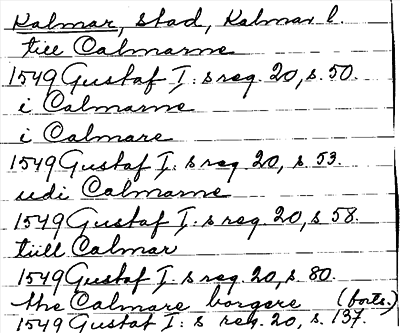 Kalmar, stad, Kalmar l.
till Calmarne
1549 Gustaf I:s reg. 20, s. 50.
i Calmarne
i Calmare
1549 Gustaf I:s reg. 20, s. 53.
udi Calmarne
1549 Gustaf I:s reg. 20, s 58.
tiill Calmar
1549 Gustaf I:s reg. 20, s. 80.
the Calmare borgere (forts.)
1549 Gustaf I:s reg. 20, s. 137.